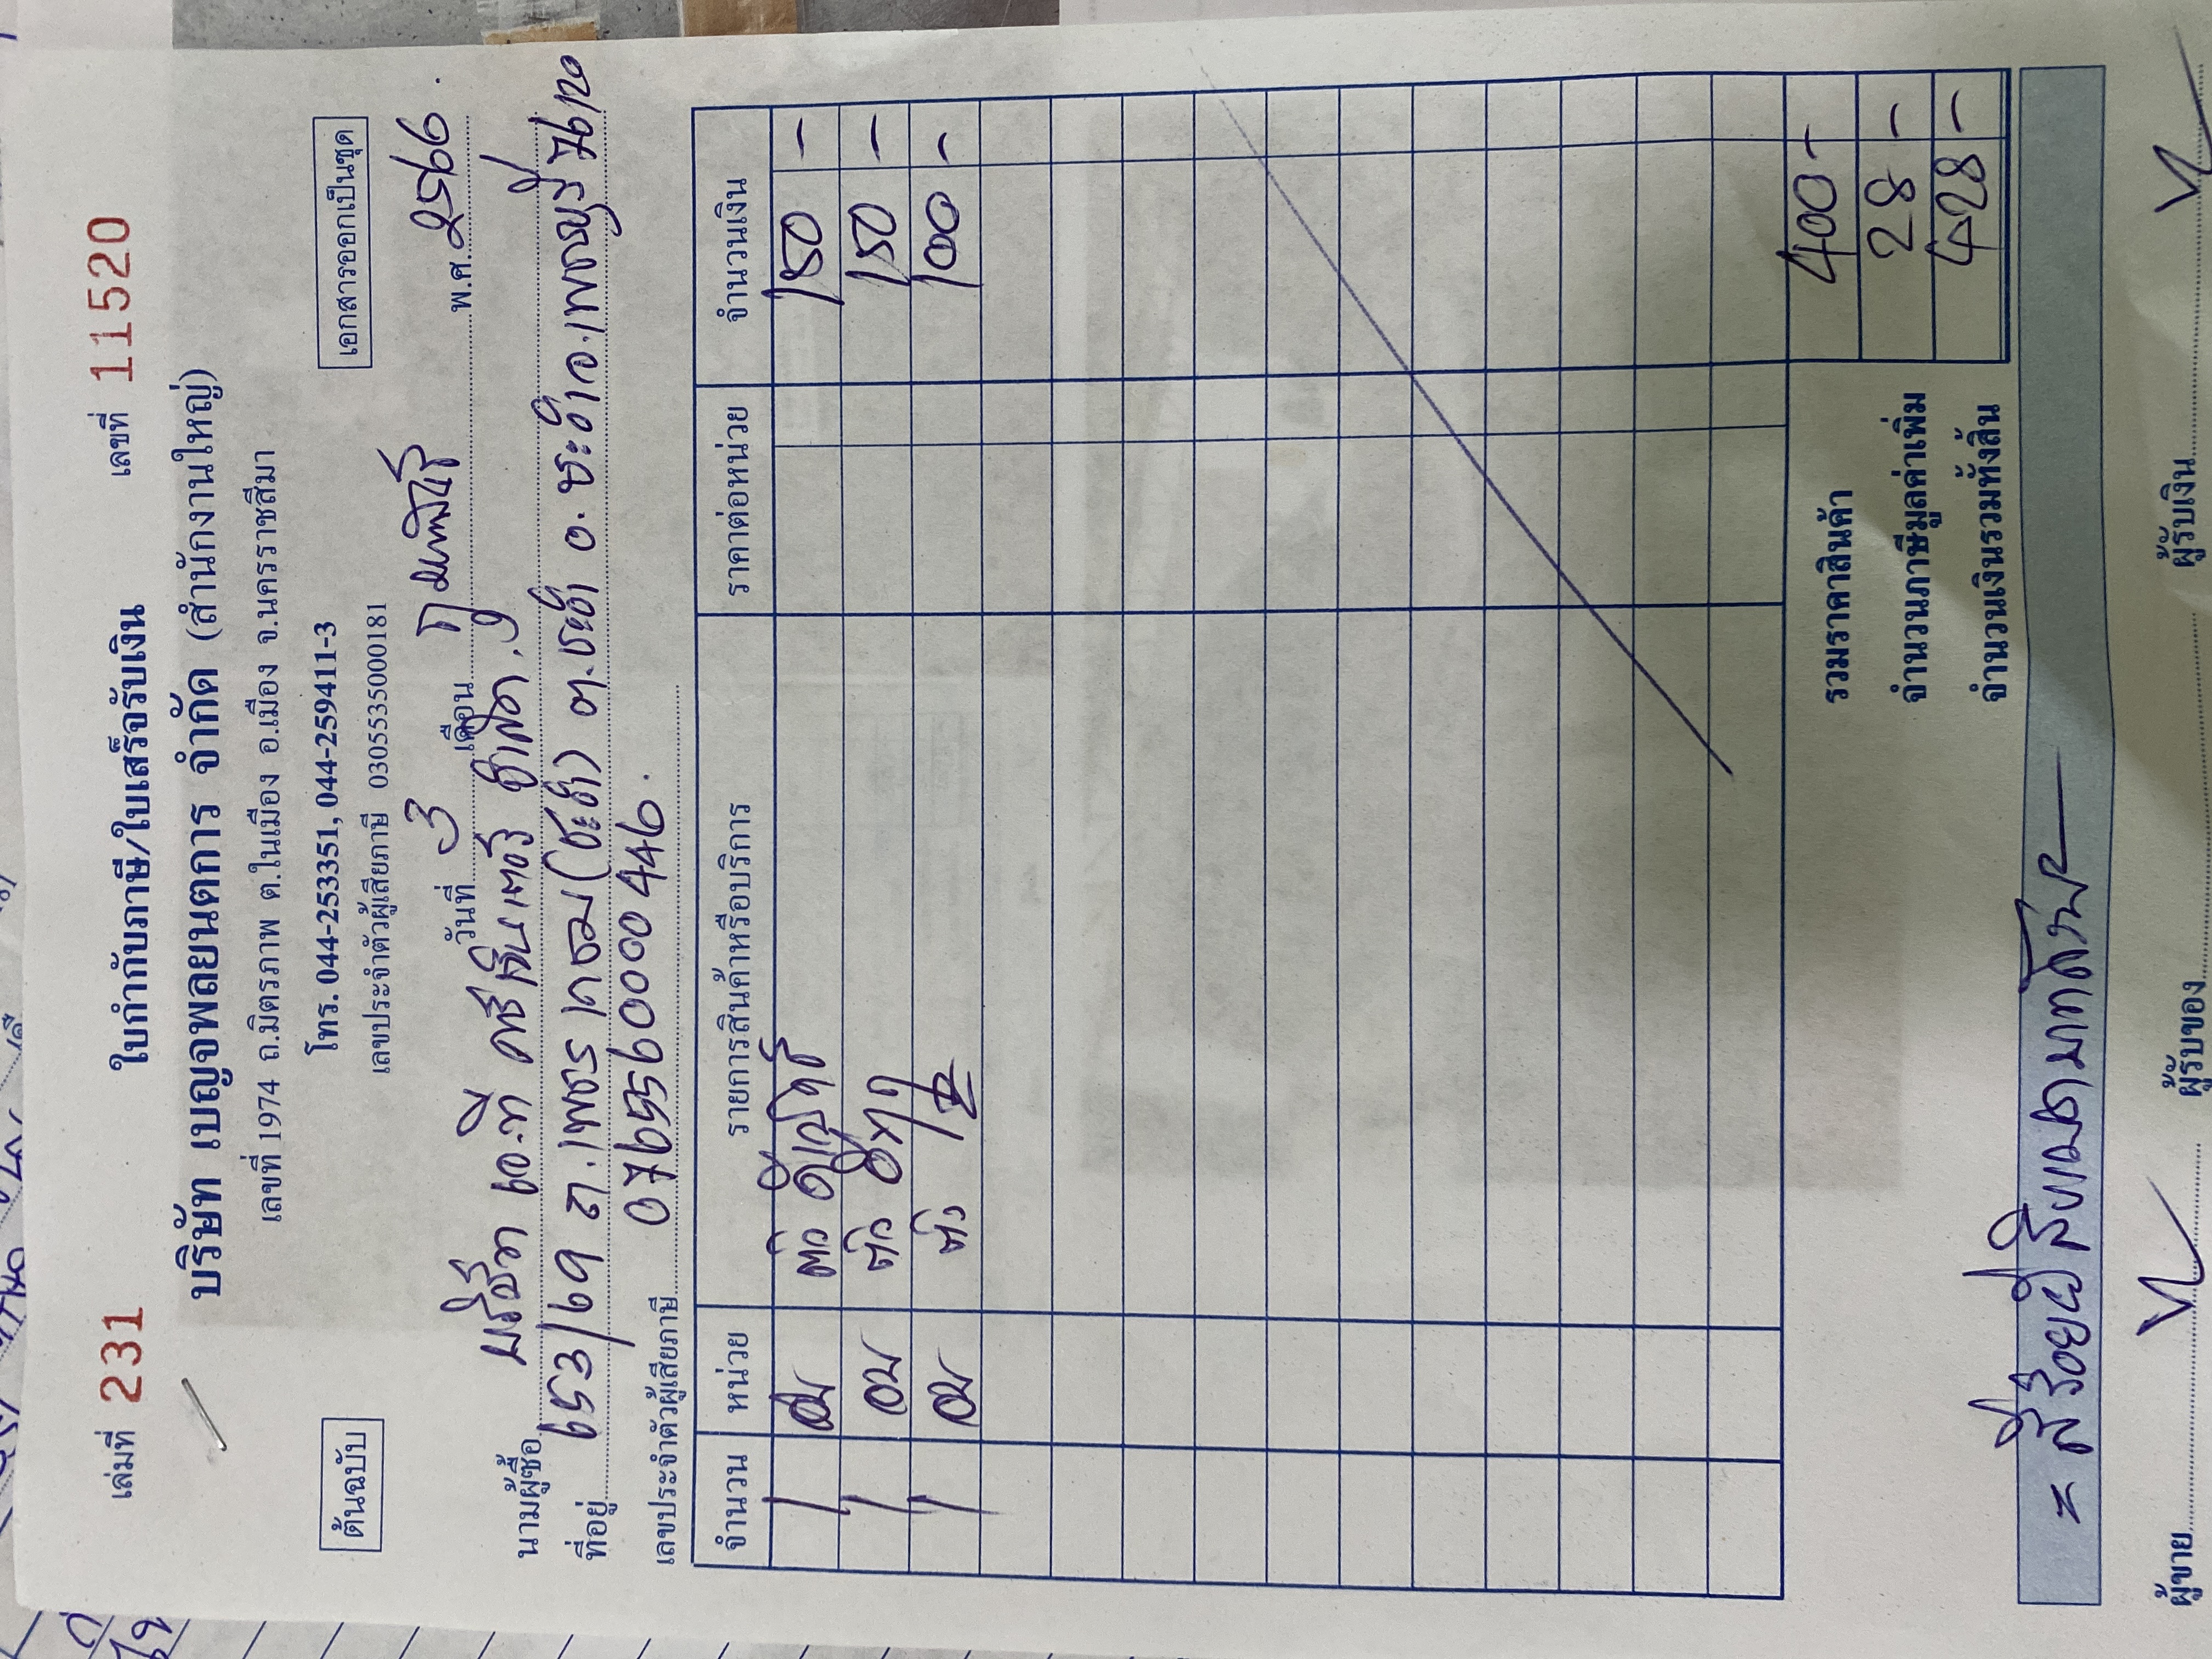 เล่มที่ 231 ใบกำกับภาษี/ใบเสร็จรับเงิน เลขที่ 11520
บริษัท เบญจพลยนตการ จำกัด (สำนักงานใหญ่)
เลขที่ 1974 ถ.มิตรภาพ ต.ในเมือง อ.เมือง จ.นครราชสีมา
ต้นฉบับ โทร. 044-253351, 044-259411-3 เอกสารออกเป็นชุด
เลขประจำตัวผู้เสียภาษี 0305535000181
วันที่ 3 เดือน กุมภาพันธ์ พ.ศ. 2566.
นามผู้ซื้อ บริษัท เอ.ที จำกัด.
ที่อยู่ 653/69 ถ.เพชรเกษม (ชะอำ) ต.ชะอำ อ.ชะอำ จ.เพชรบุรี 76120
เลขประจำตัวผู้เสียภาษี 0765560000446.
จำนวน หน่วย รายการสินค้าหรือบริการ ราคาต่อหน่วย จำนวนเงิน
1 150 -
1 150 -
1 100 -
รวมราคาสินค้า 400 -
จำนวนภาษีมูลค่าเพิ่ม 28 -
จำนวนเงินรวมทั้งสิ้น 428 -
= สี่ร้อยยี่สิบแปดบาทถ้วน
ผู้ขาย ผู้รับของ ผู้รับเงิน